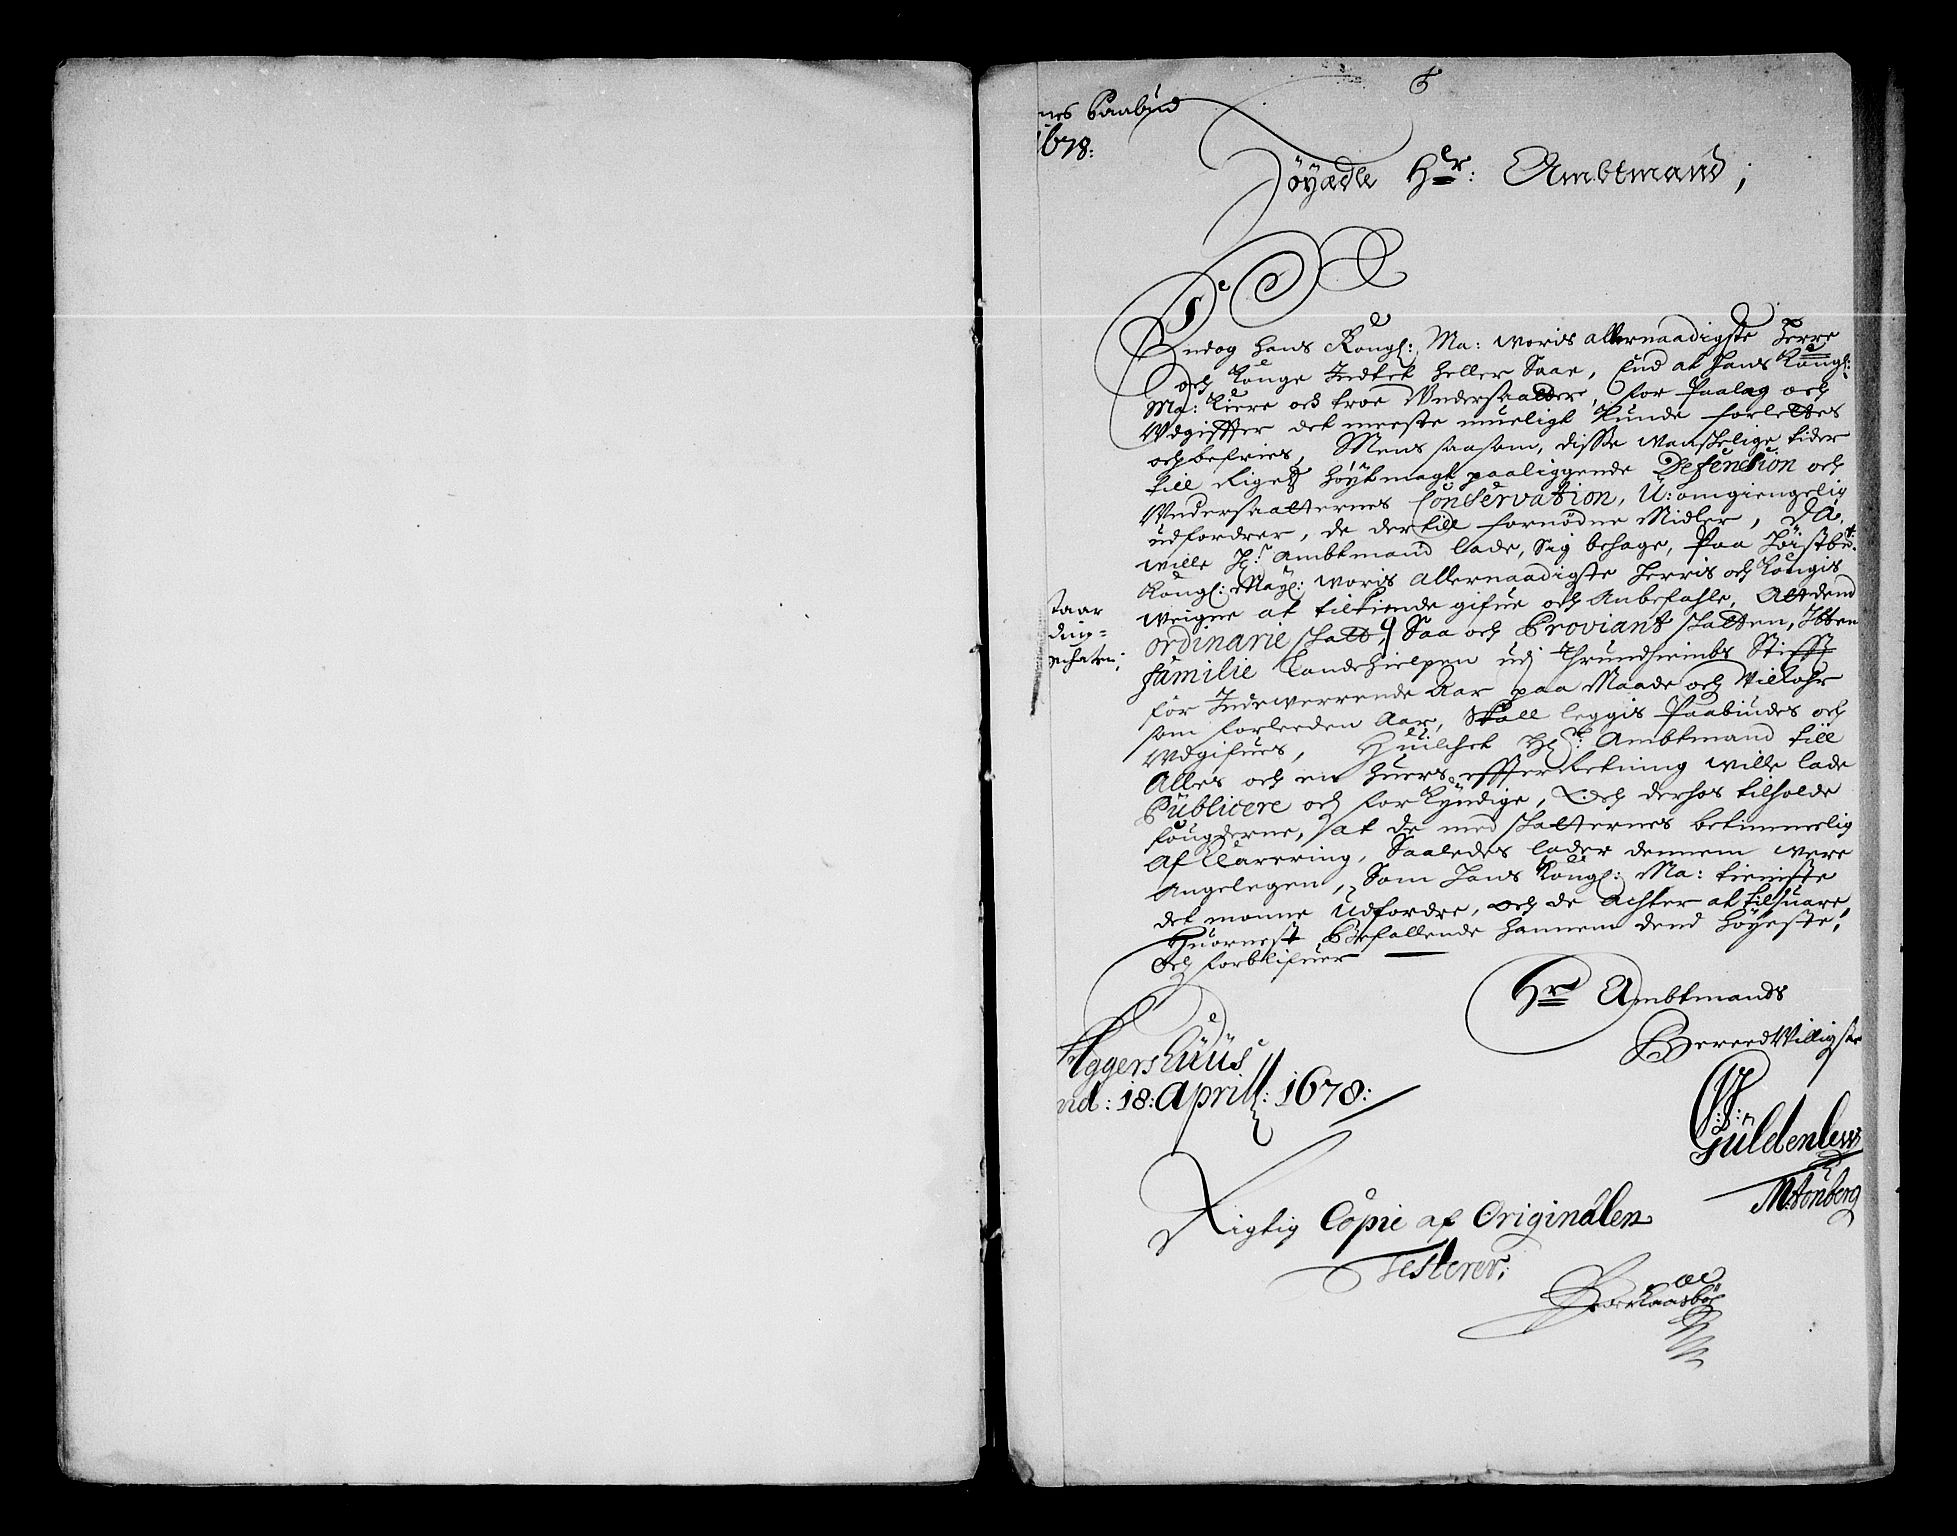 nes Paabud
1678:
Höyædle Hr: Ambtmand;
Endog hans Kongl: Ma: woris allernaadigste Herre
och Konge Intet heller Saae, End at hans Kongl:
Ma: kiere och troe Undersaatter, for Paalag och
Udgiffter det meeste mueligt kunde forlettes
och befries, Mens saasom, disse vanskelige tider
till Rigetz höyt magt paaliggende Defension och
Undersaatternes Conservation, U:omgiengelig
udfordrer, de dertill fornödne Midler, Da
wille Hr: Ambtmand lade, Sig behage, Paa Höistbte
Kongl: Mayt: woris Allernaadigste Herris och Kongis
weigne at tilkiende gifue och Anbefahle, At dend
taar
ding=
schaten;
ordinarie skatt, Saa och Proviant skatten, Item
familie Landehielpen udj Thrundheimbs Stifft
for Indewerrende Aar paa Maade och Vilkohr
som forleeden Aar, Skall leggis Paabiudes och
Udgifues, Huilchet Hr: Ambtmand till
Alles och en huers effterRetning wille lade
Publicere och forkyndige, Och derhos tilholde
fougderne, at de med skatternes betimmelig
Af Clarering, Saaledes lader dennem were
Angelegen, Som Hans Kongl: Ma: tieniste
det monne Udfordre, och de Achter at tilsuare,
Huornest Befallende hannem dend Höyeste,
Och forblifuer
Hr Ambtmands
BereedVilligste
Aggershuus
nd: 18: Aprill: 1678:
Güldenlew
MTönberg
Rigtig Copie af Originalen
Testerer;